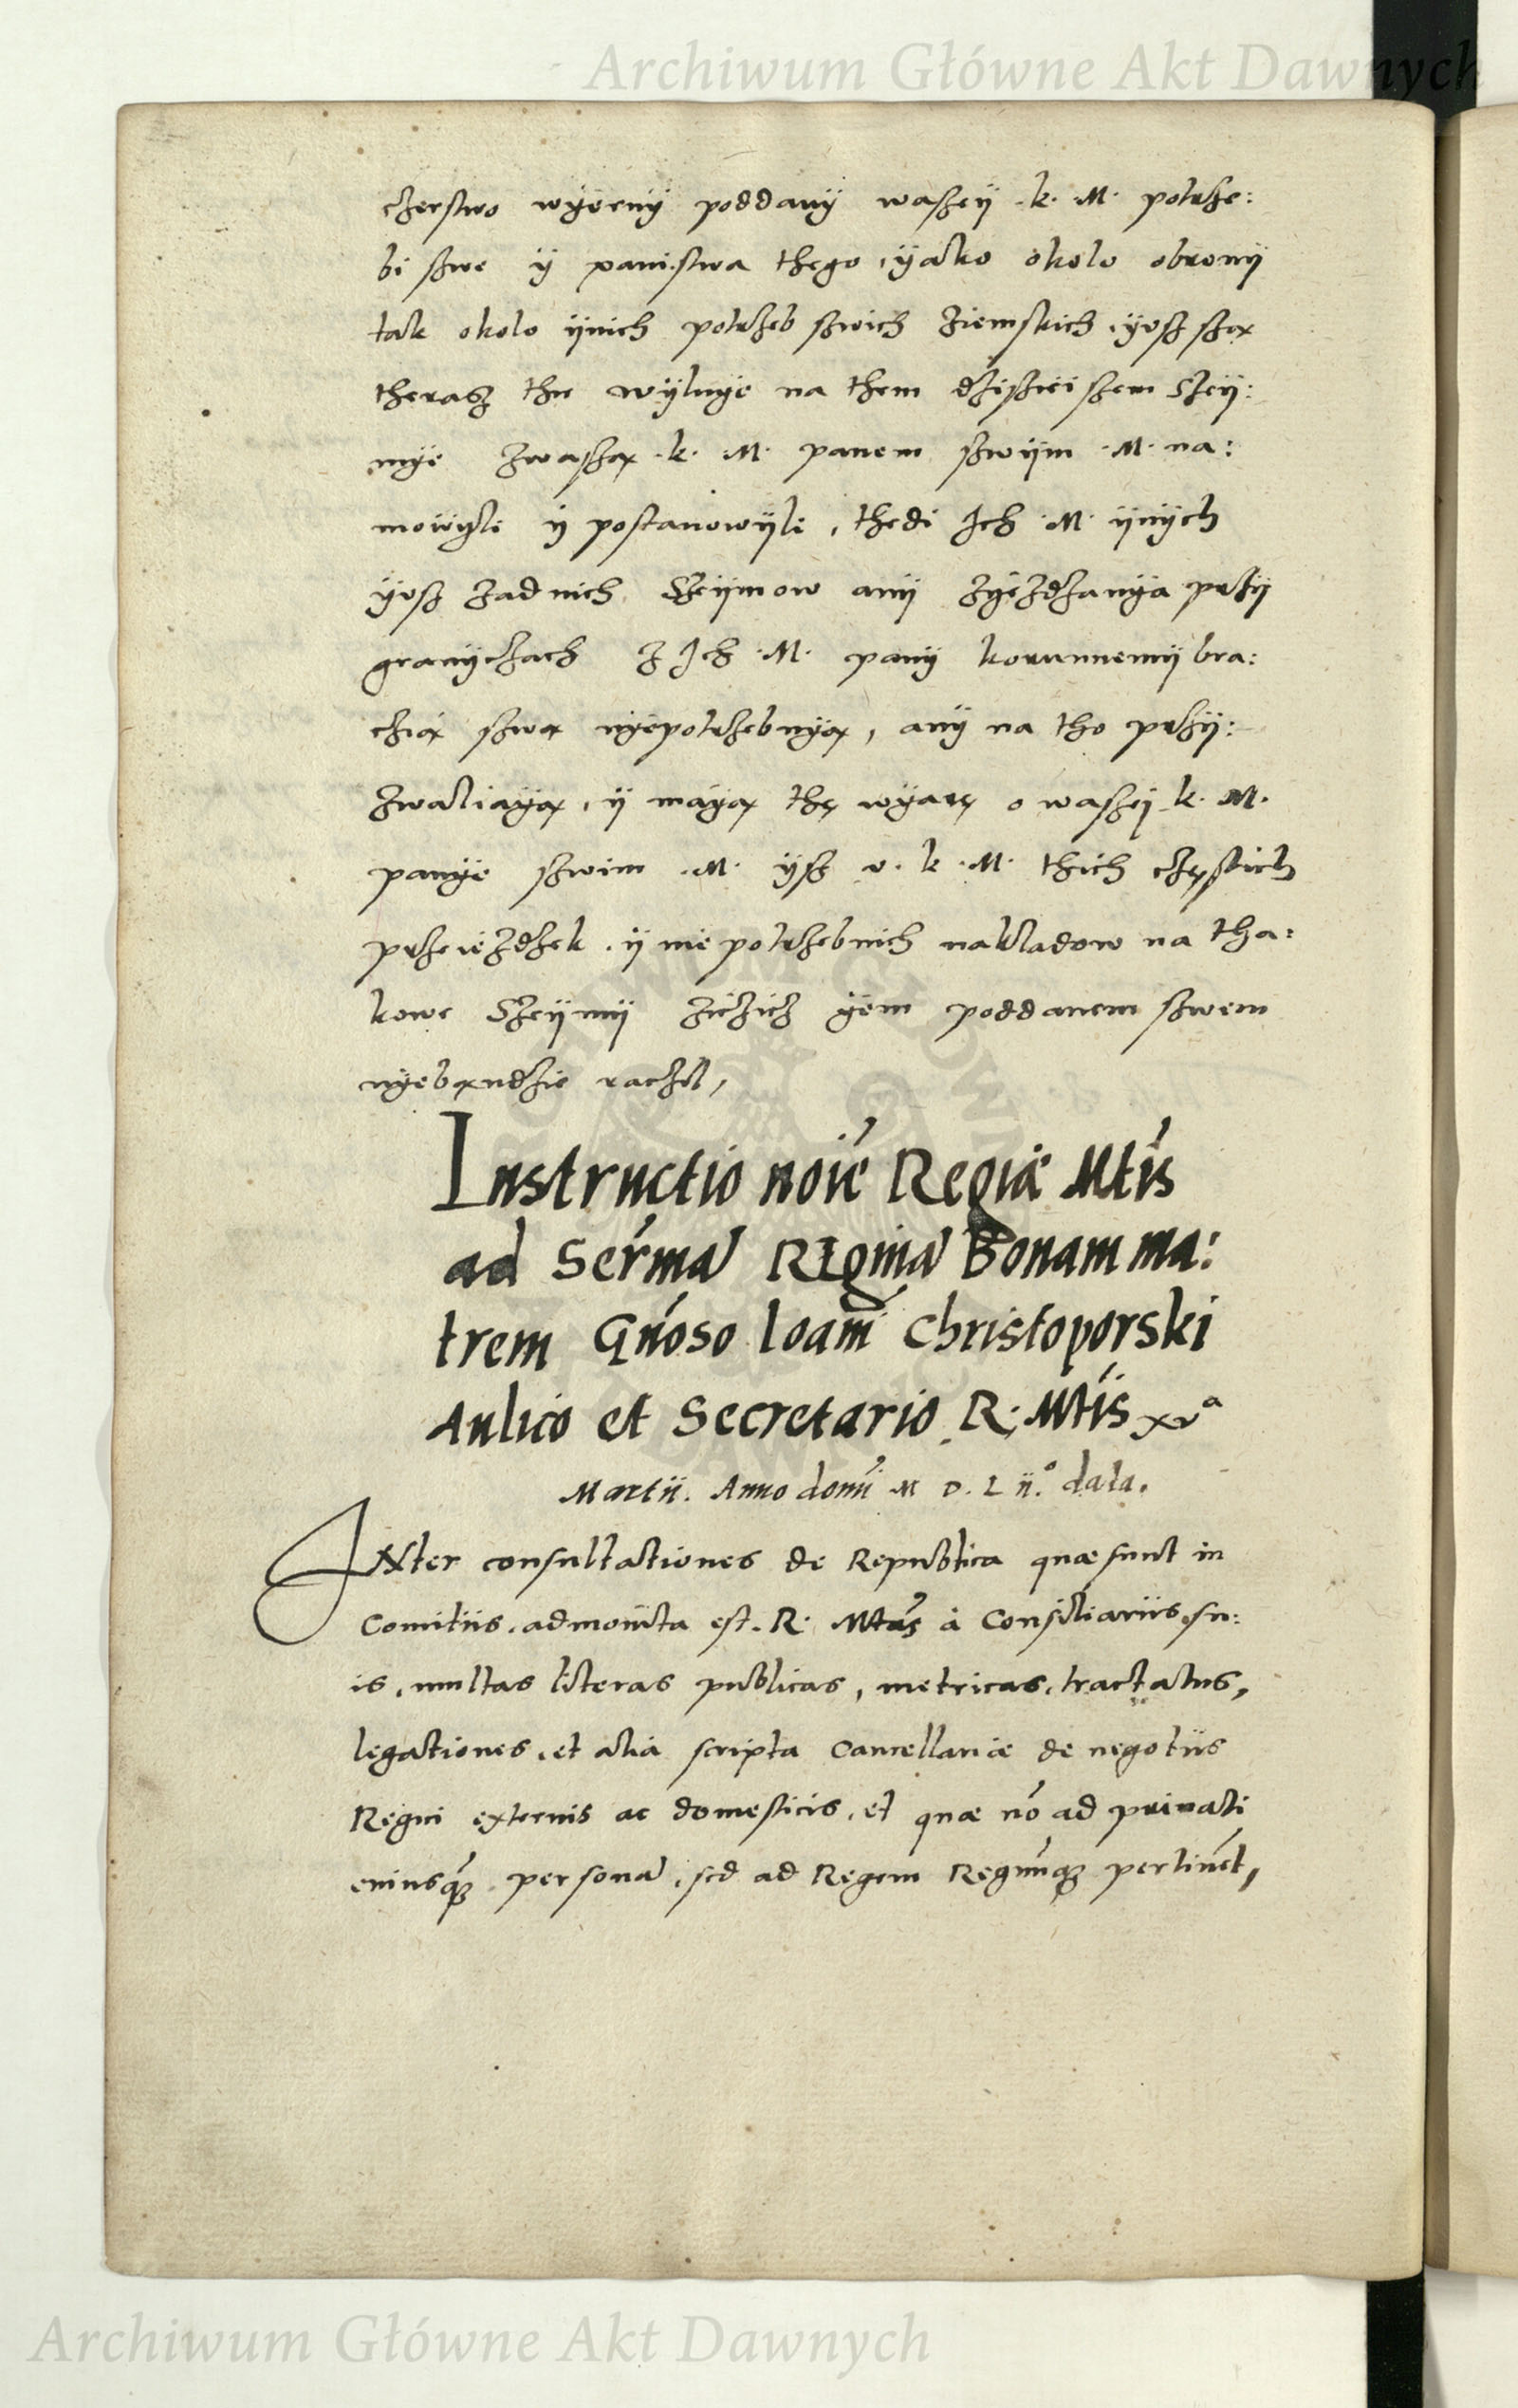 Archiwum Główne Akt Dawnych
czerstwo wyerny poddany waszey .k. M. potrze:
bi szwe y panistwa thego, yako okolo obrony
tak okolo ynich potrzeb szwich ziemskich, yvsz szą
therasz thu w na them Szey:
mye zwaszą .k. M. panem szwym .M. na:
mowyli y postanowyli, thedi Ich .M. ynych
yvsz zadnich Szeymow any zyezdzanya przy
granyczach z Ich .M. pany korunnemy bra:
cżią szwą nyepotrzebnyą, any na tho przy:
zwaliayą, y mayą thę wyarę o waszej k. M.
panye szwim .M. ysz v. k .M. thich częstich
przeiezdzek, y niepotrzebnich nakladow na tha:
kowe Szeymy ziczicz yem poddanem szwem
nyebąndzie raczil,
Instructio noíe Regiæ Mtis
ad Serma Reginā Bonam ma:
trem Gnoso Ioanī Christoporski
Aulico et Secretario R. Mtis xvª
Martii. Anno domī M D. L ii.° data.
INter consultationes de Republica quæ sunt in
Comitiis, admonita est. R. Mtas à Consiliariis su:
is, multas literas publicas, metricas, tractatus,
legationes, et alia scripta Cancellariæ de negotiis
Regni externis ac domesticis, et quæ nō ad privati
cuiusq3 personā, sed ad Regem Regnūq3 pertinēt,
Archiwum Główne Akt Dawnych